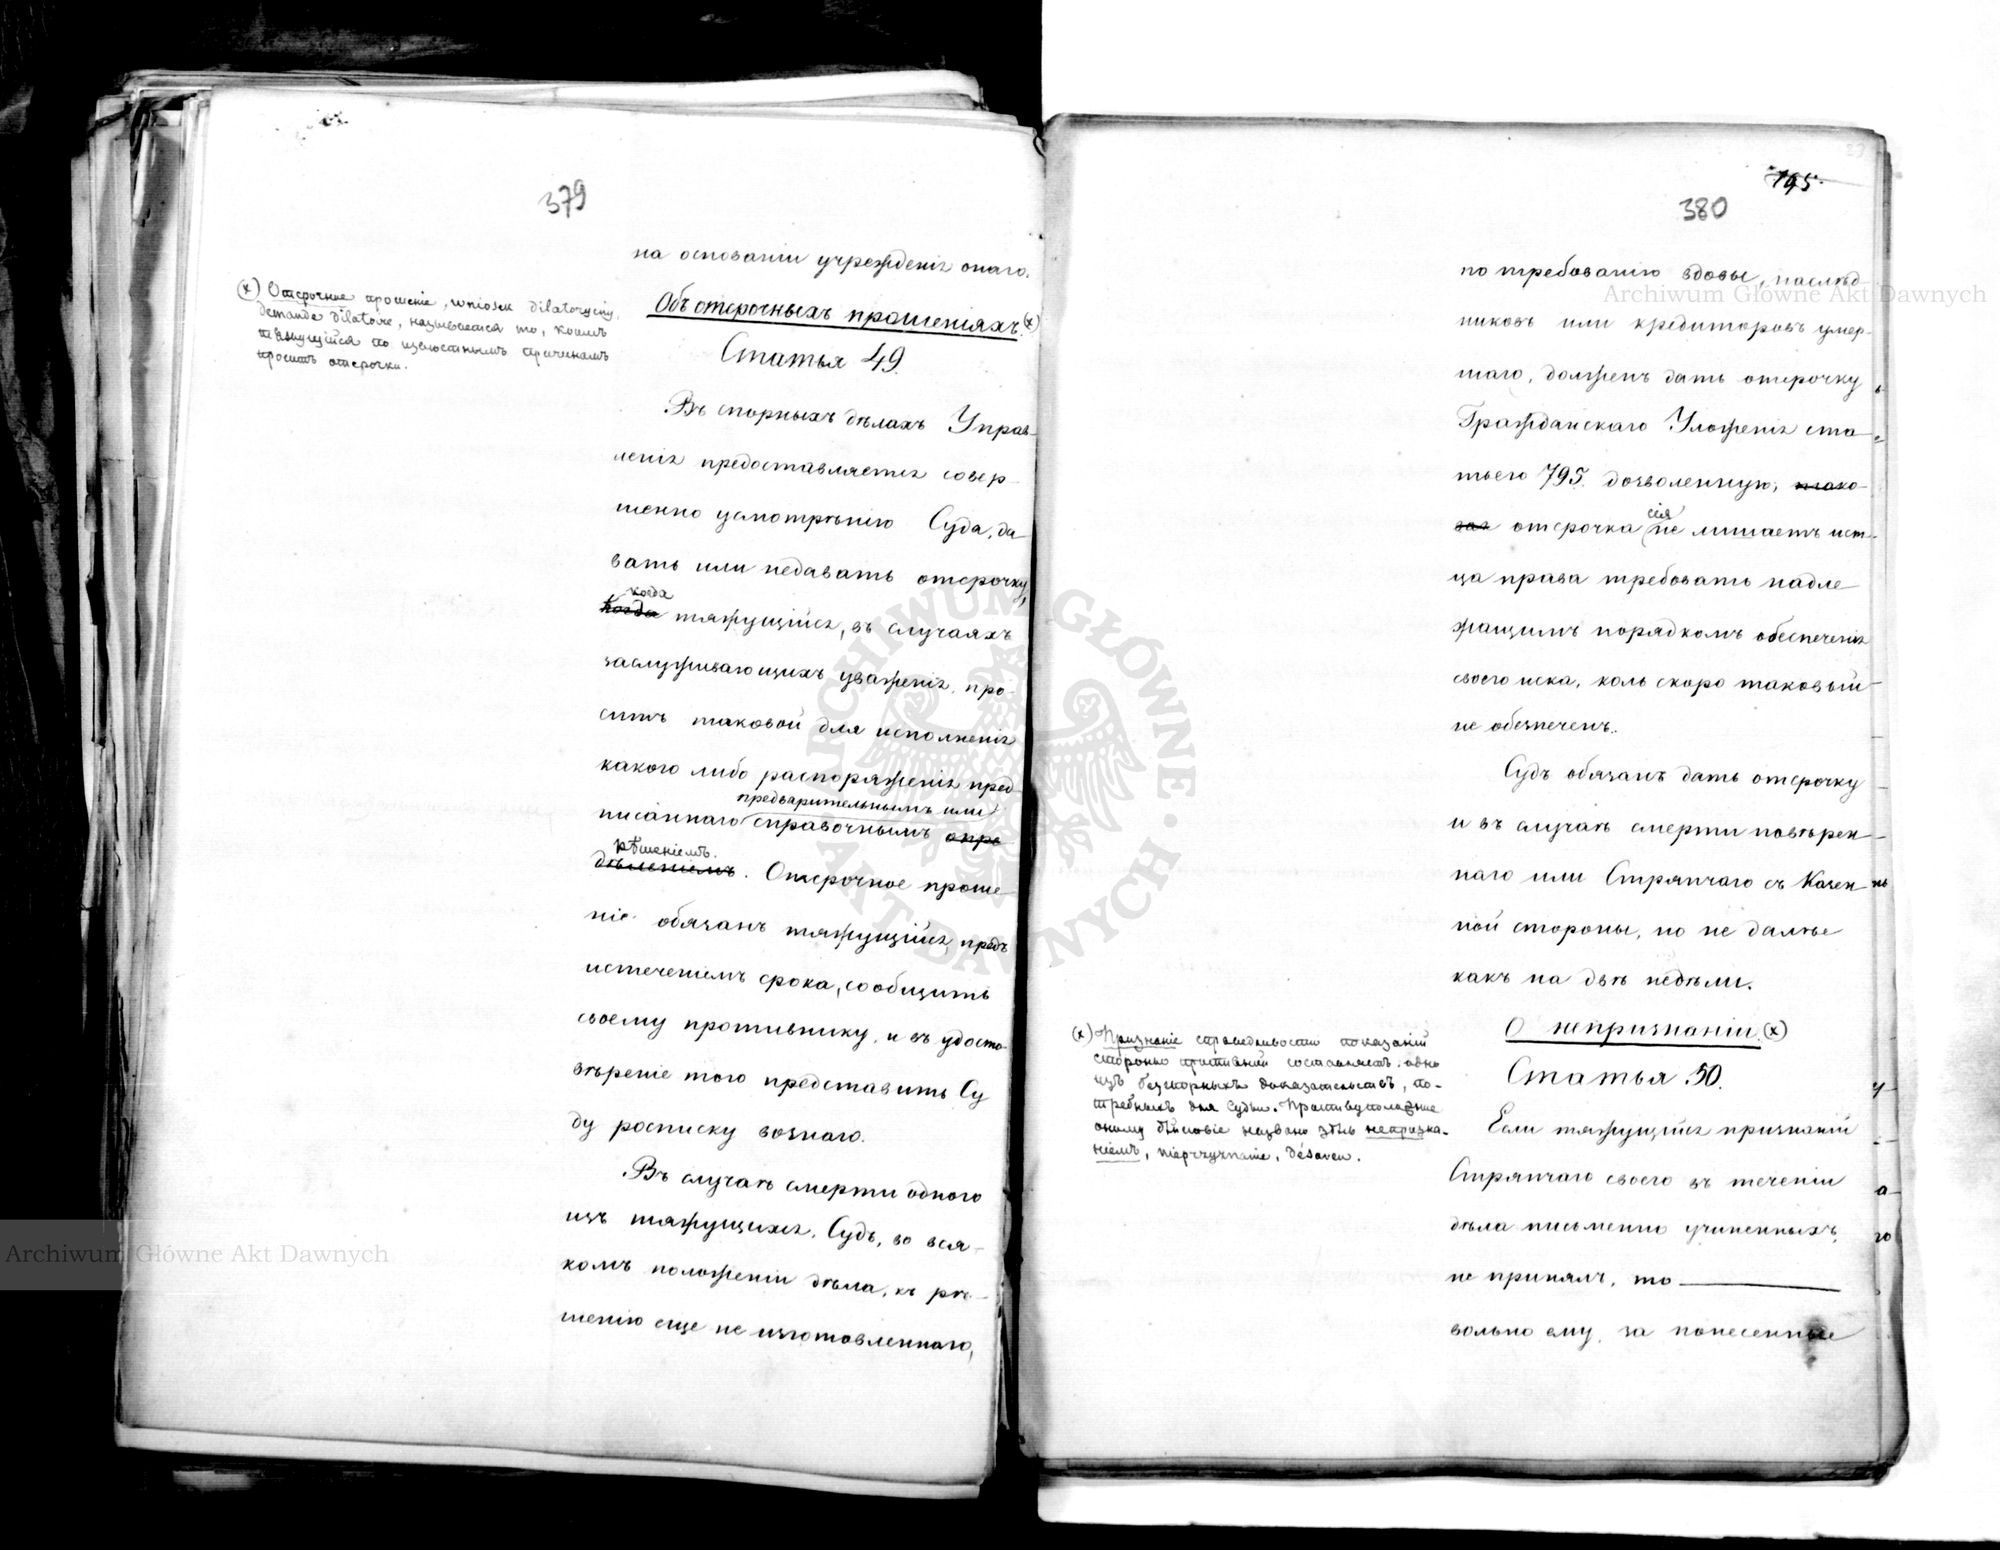 379
на основаніи учрежденія онаго.
Объ отсрочныхъ прошеніяхъ. (x)
Статья 49.
(x) Отсрочное прошеніе, wniosek dilatoryczny,
demande dilatoire, называется то, коимъ
тяжущійся по извѣстнымъ причинамъ
проситъ отсрочки.
Въ спорныхъ дѣлахъ Управ-
ленія предоставляется совер-
шенно усмотрѣнію Суда, да
вать или недавать отсрочку,
когда
когда тяжущійся, въ случаяхъ
заслуживающихъ уваженія, про-
ситъ таковой для исполненія
какого либо распоряженія пред-
предварительнымъ или
писаннаго справочнымъ опре
рѣшеніемъ.
дѣленіемъ. Отсрочное проше-
ніе обязанъ тяжущійся, предъ
истеченіемъ срока, сообщить
своему противнику, и въ удосто-
вѣреніе того представить Су
ду росписку вознаго.
Въ случаѣ смерти одного
изъ тяжущихся, Судъ, во вся-
комъ положеніи дѣла, къ рѣ-
шенію еще не изготовленнаго,
195.
380
по требованію вдовы, наслѣд-
никовъ или кредиторовъ умер-
шаго, долженъ дать отсрочку
Гражданскаго Уложенія ста-
тьею 795. дозволенную, тако-
сія
вая отсрочка не лишаетъ ист-
ца права требовать надле
жащимъ порядкомъ обеспеченія
своего иска, коль скоро таковый
не обезпеченъ.
Судъ обязанъ дать отсрочку
и въ случаѣ смерти повѣрен-
наго или Стряпчаго съ Казен-
ной стороны, но не далѣе
какъ на двѣ недѣли.
О непризнаніи. (x)
Статья 50.
(x) Признаніе справедливости показаній
стороны противной составляетъ одно
изъ безспорныхъ доказательствъ, по-
требныхъ для Судьи. Противуположное
оному дѣйствіе названо здѣсь непризна-
ніемъ, nieprzyznanie, désaveu.
Если тяжущійся признаній
Стряпчаго своего въ теченіи
дѣла письменно учиненныхъ,
не принялъ, то
вольно ему, за понесенные
Archiwum Główne Akt Dawnych
Archiwum Główne Akt Dawnych
ARCHIWUM GŁÓWNE AKT DAWNYCH